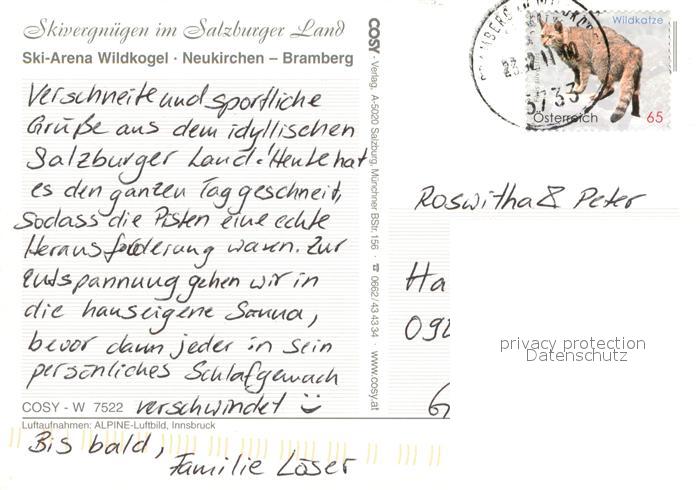 Skivergnügen im Salzburger Land
Ski-Arena Wildkogel · Neukirchen – Bramberg
Verschneite und sportliche
Grüße aus dem idyllischen
Salzburger Land! Heute hat
es den ganzen Tag geschneit,
sodass die Pisten eine echte
Herausforderung waren. Zur
Entspannung gehen wir in
die hauseigene Sauna,
bevor dann jeder in sein
persönliches Schlafgemach
verschwindet
COSY - W 7522
Luftaufnahmen: ALPINE-Luftbild, Innsbruck
Bis bald,
Familie Löser
COSY - Verlag, A-5020 Salzburg, Münchner BStr. 156 · ☎ 0662/43 43 34 · www.cosy.at
Wildkatze
Österreich 65
5733
Roswitha & Peter
Ha
privacy protection
Datenschutz